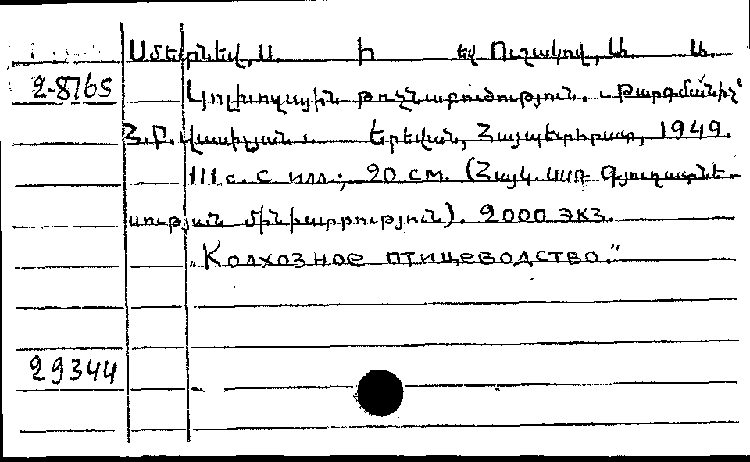 Սմետնեվ, Ս. Ի եվ Ուշակով, Ա. Ա.
2-8765 Կոլխոզային թռչնաբուծություն. Թարգմանիչ՝
Հ. Մ. Վասիլյան. Երեվան, Հայպետհրատ, 1949.
111 с. с илл.; 20 см. (Հայկ. ՍՍՌ Գյուղատնտե-
սության մինիստրություն). 2000 экз.
„Колхозное птицеводство."
29344